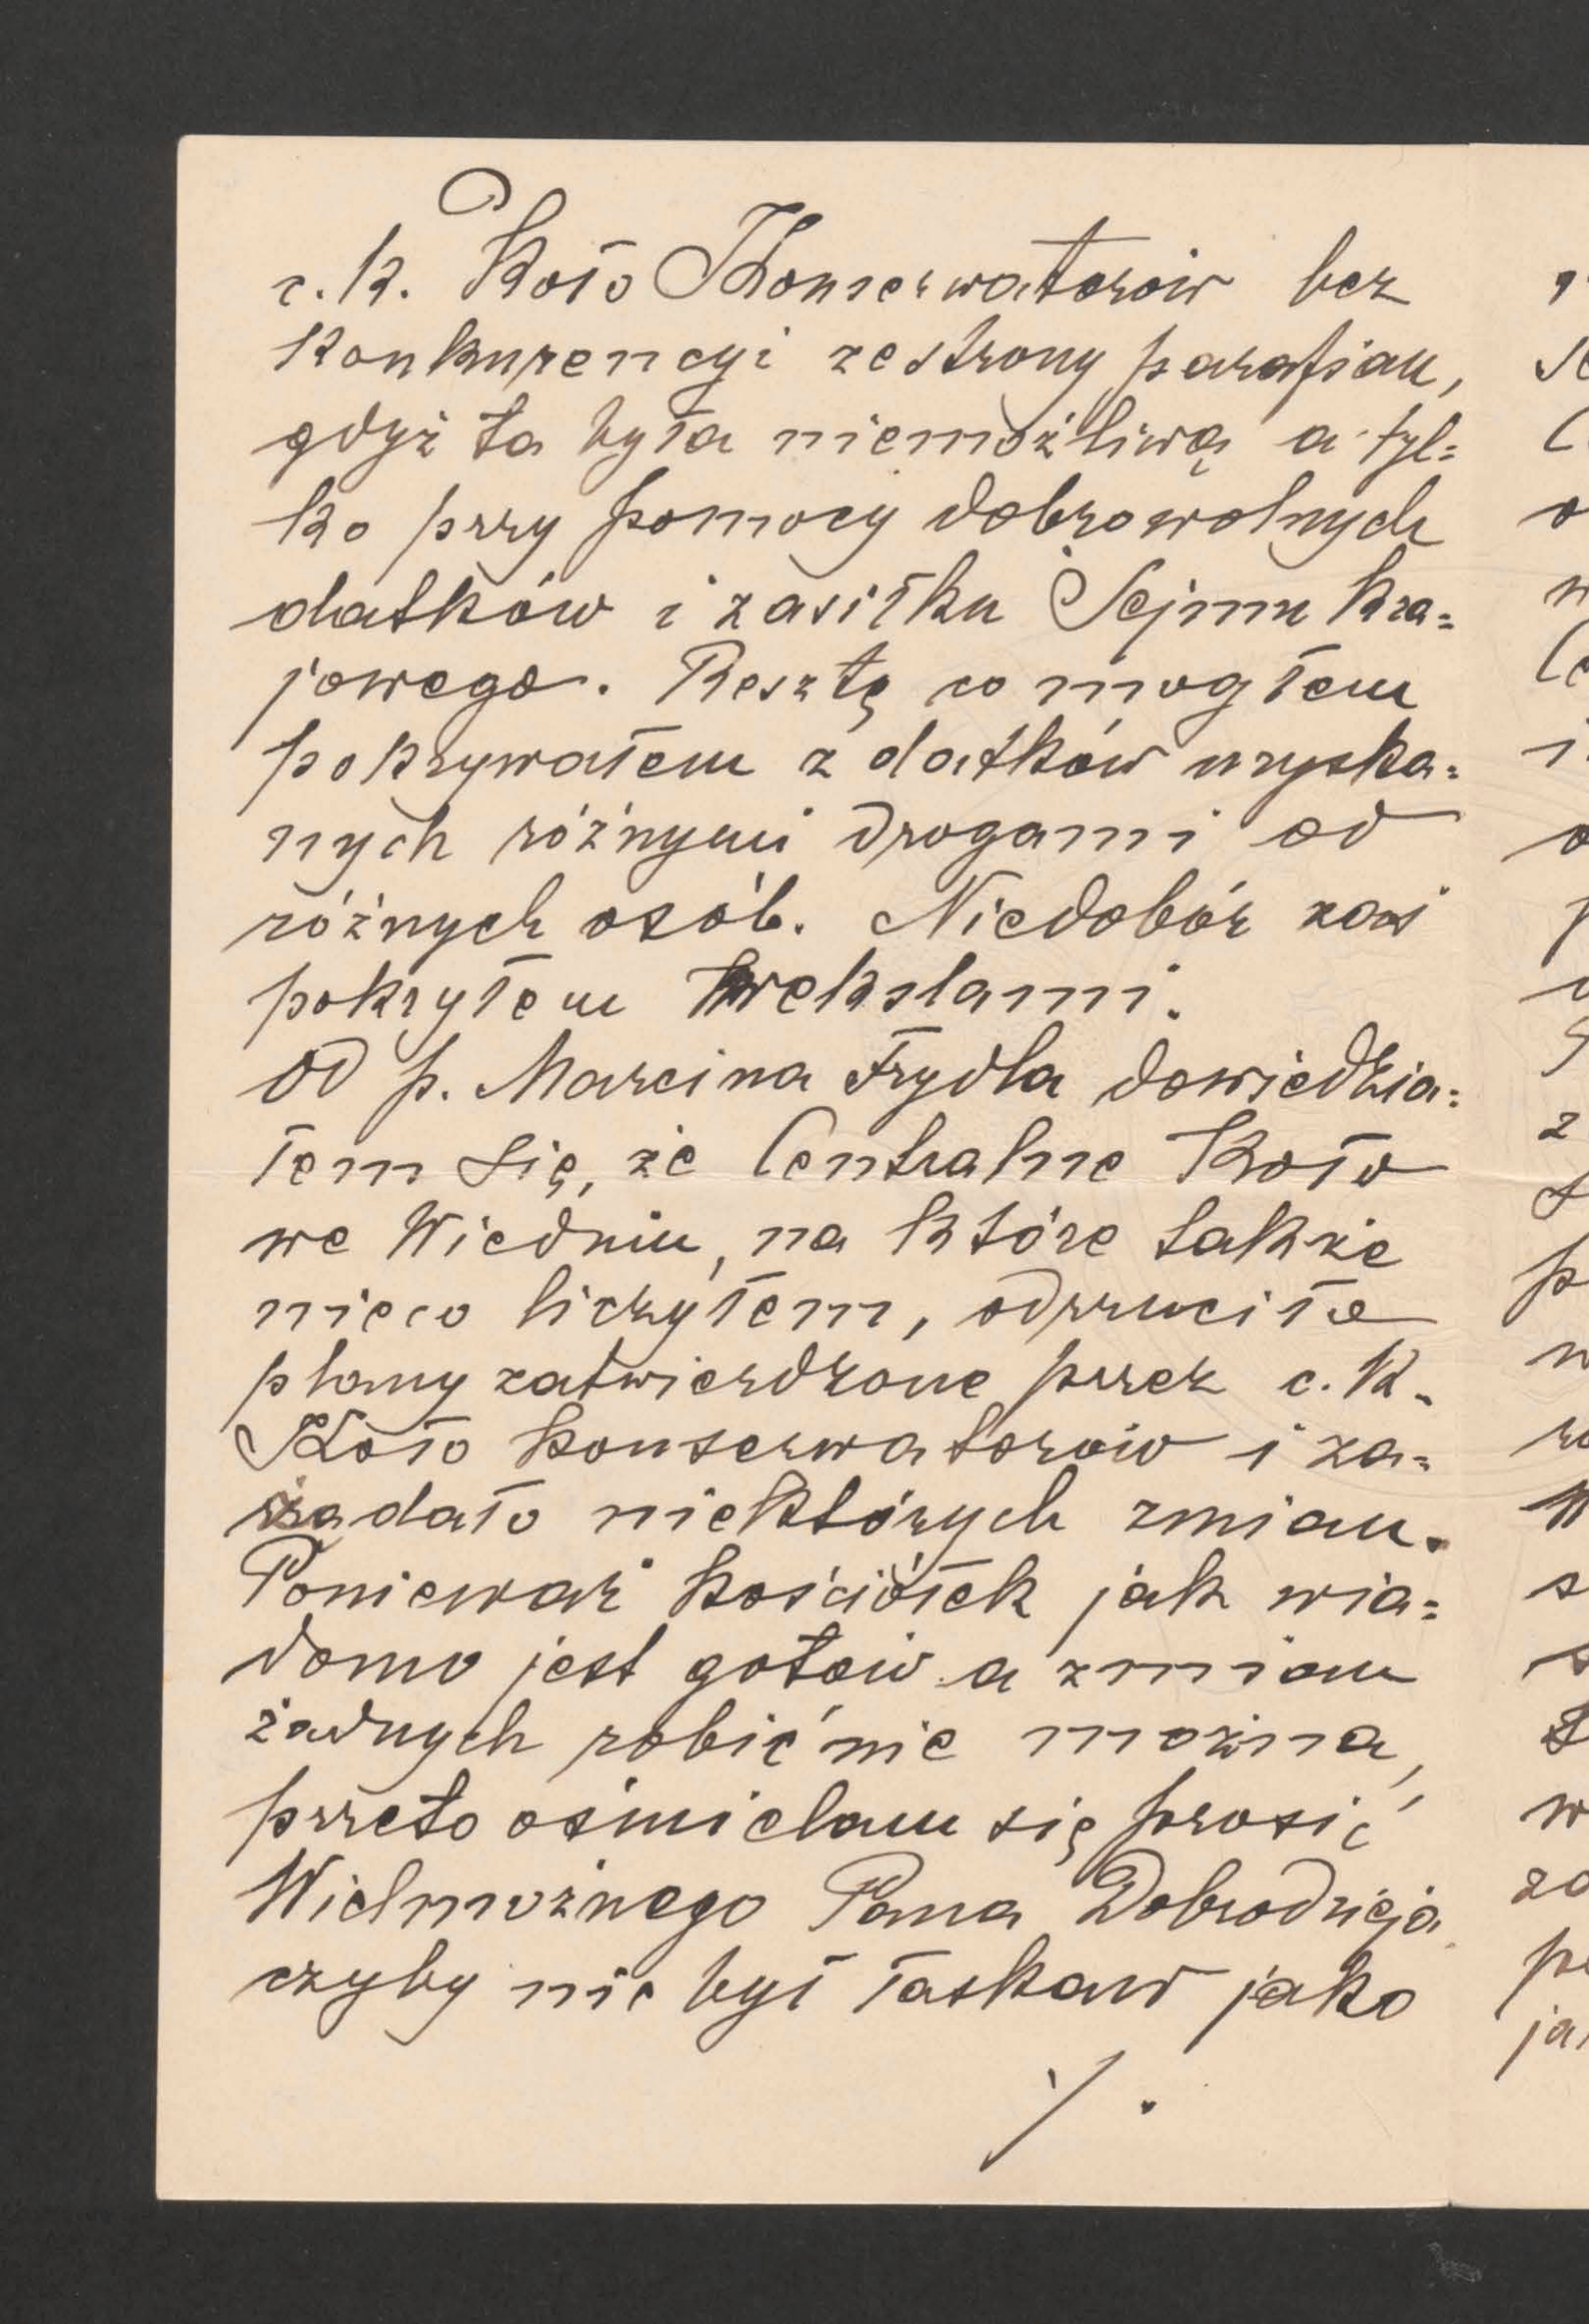 c. k. Koło Konserwatorów bez
konkurencyi ze strony parafian,
gdyż ta była niemożliwą a tyl=
ko przy pomocy dobrowolnych
datków i zasiłku Sejmu kra=
jowego. Resztę co mogłem
pokrywałem z datków uzyska=
nych różnymi drogami od
różnych osób. Niedobór zaś
pokryłem wekslami.
Od p. Marcina Frydla dowiedzia=
łem się, że Centralne Koło
we Wiedniu, na które także
nieco liczyłem, odrzuciło
plany zatwierdzone przez c. k.
Koło konserwatorów i za=
żądało niektórych zmian.
Ponieważ kościółek jak wia=
domo jest gotów a zmian
żadnych robić nie można,
przeto ośmielam się prosić
Wielmożnego Pana Dobrodzieja
czyby nie był łaskaw jako
./.